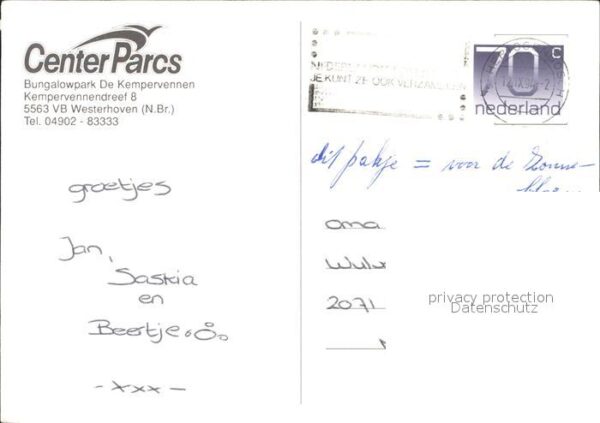 Center Parcs
Bungalowpark De Kempervennen
Kempervennendreef 8
5563 VB Westerhoven (N.Br.)
Tel. 04902 - 83333
JE KUNT ZE OOK VERZAMELEN
70 c
nederland
dit pakje = voor de Zonne-
groetjes
Jan,
Saskia
en
Beertje
- xxx -
oma
2071
privacy protection
Datenschutz